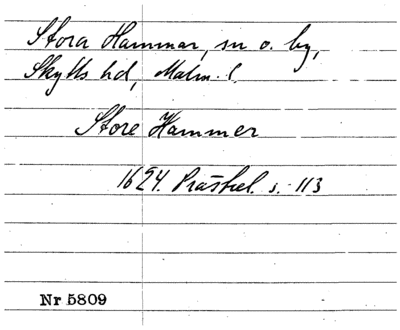 Stora Hammar, sn o. by,
Skytts hd, Malm. l.
Store Hammer
1624. Prästrel. s. 113
Nr 5809